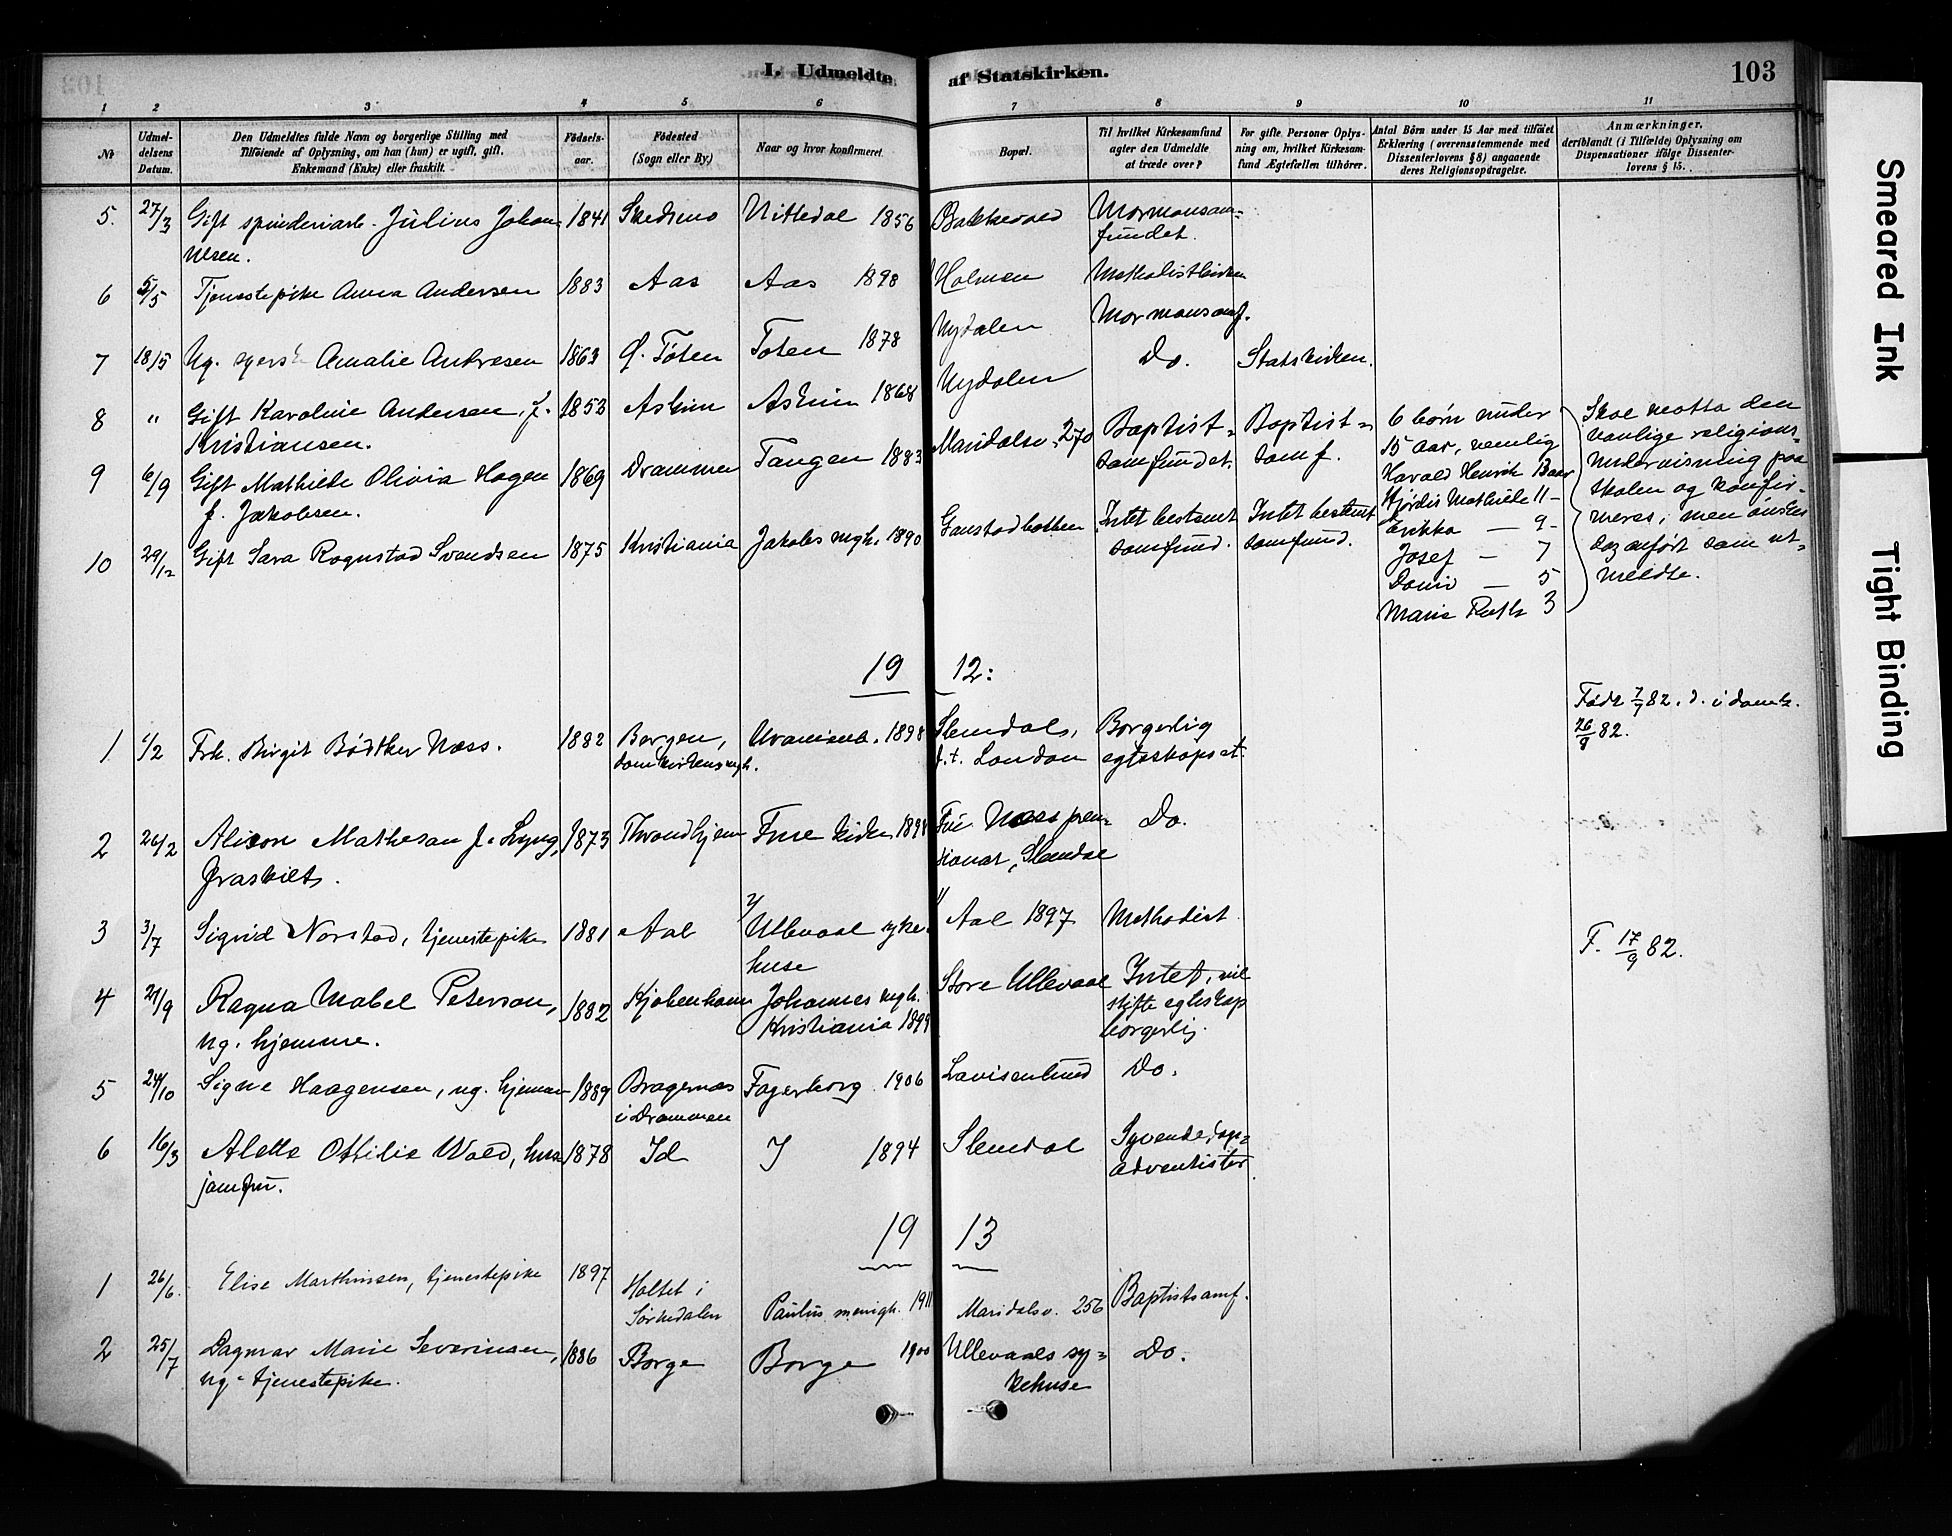 I. Udmeldte af Statskirken. 103
1 2 3 4 5 6 7 8 9 10 11
№
Udmeldelsens Datum.
Den Udmeldtes fulde Navn og borgerlige Stilling med
Tilføiende af Oplysning, om han (hun) er ugift, gift,
Enkemand (Enke) eller fraskilt.
Fødselsaar.
Fødested
(Sogn eller By)
Naar og hvor konfirmeret.
Bopæl.
Til hvilket Kirkesamfund
agter den Udmeldte
at træde over?
For gifte Personer Oplys-
ning om, hvilket Kirkesam-
fund Ægtefællen tilhører.
Antal Børn under 15 Aar med tilføiet
Erklæring (overensstemmende med
Dissenterlovens § 8) angaaende
deres Religionsopdragelse.
Anmærkninger,
deriblandt (i Tilfælde) Oplysning om
Dispensationer ifølge Dissenter-
lovens § 15.
5. 27/3 Gift spinderiarb. Julius Johan 1841 Skedsmo Nittedal 1856 Bakkevold Mormonsam=
nsen. fundet.
6 5/5 Tjenestepike Anna Andersen 1883 Aas Aas 1898 Holmen Methodistkirken
Mormonsamf.
7 18/5 Ug. Amalie Andresen 1863 Ø. Toten Toten 1878 Nydalen Do. Statskirken.
8 " Gift Karoline Andersen, f. 1853 Askim Askim 1868 Nydalen
Kristiansen.
9 6/9 Gift Mathilde Olivia Hagen 1869 Drammen Tangen 1883 Maridalsv. 270 Baptist= Baptist=
f. Jakobsen. samfundet. samf.
10 29/12 Gift Sara Rognstad Svendsen 1875 Kristiania Jakobs mgh. 1890 Gaustadbakken Intet bestemt Intet bestemt
samfund. samfund.
6 børn under
15 aar, nemlig
Harald Henrik
Hjørdis Mathilde 11 -
Erikka — 9 -
Josef — 7
David — 5
Marie Ruth 3
Skal motta den
vanlige religions=
undervisning paa
skolen og konfir-
meres, men ønskes
anført som ut=
meldte.
19 12:
1 1/2 Frk. Birgit Bødtker Næss. 1882 Bergen, Uranienb. 1898 Slemdal, Borgerlig Født 7/7 82. d. i domk.
domkirkens mgh. f.t. London egteskapset. 26/9 82.
2 26/2 Alison Matheson f. Lyng, 1873 Throndhjem Frue kirke Fru Næss pen= Do.
fraskilt. sionat, Slemdal
3 3/7 Sigrid Norstad, tjenestepike 1881 Aal 2/ Ullevaal syke- 1/ Aal 1897 Methodist
huse
F. 17/9 82.
4 21/9 Ragna Mabel Peterson, 1882 Kjøbenhavn Johannes mgh. Store Ullevaal Intet, vil
ug. hjemme. Kristiania 1899 stifte egteskap
borgerlig.
5 24/10 Signe Haagensen, ug. hjemme 1889 Bragernæs Fagerborg 1906 Lovisenlund Do.
i Drammen
6 16/3 Alette Ottilie Wold, hus 1878 Id I 1894 Slemdal Syvendedags=
jomfru. adventister
19 13
1 26/6. Elise Marthinsen, tjenestepike 1897 Holtet i
Sørkedalen Paulus menigh. 1911 Maridalsv. 256 Baptistsamf.
2 25/7 Dagmar Marie Severinsen, 1886 Borge Borge 1900 Ullevaals sy= Do.
ug. tjenestepike. kehuse
Smeared Ink
Tight Binding